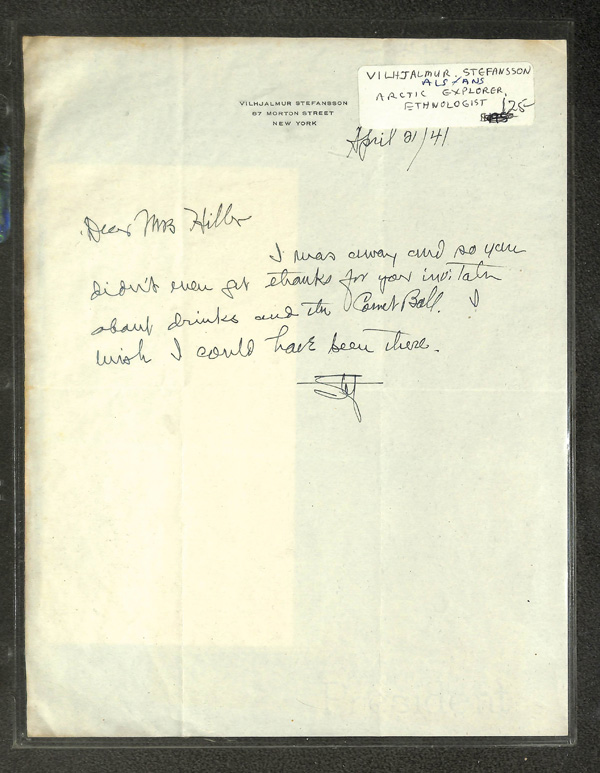 VILHJALMUR STEFANSSON
ALS/ANS
ARCTIC EXPLORER,
ETHNOLOGIST
125-
VILHJALMUR STEFANSSON
67 MORTON STREET
NEW YORK
April 21/41
Dear Mrs Hiller
I was away and so you
didn't even get thanks for your invitatn
about drinks and the Comet Ball. I
wish I could have been there.
Stef